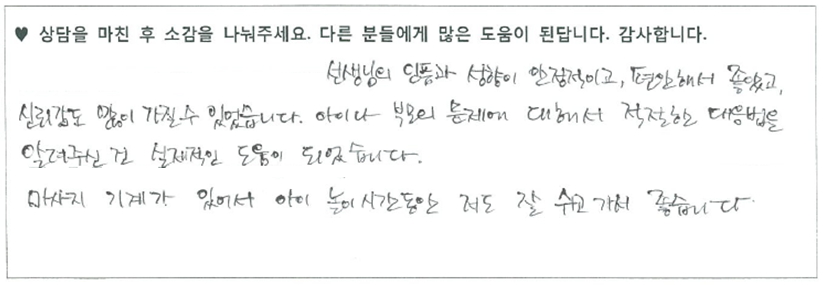 ♥ 상담을 마친 후 소감을 나눠주세요. 다른 분들에게 많은 도움이 된답니다. 감사합니다.
선생님의 인품과 성향이 안정적이고, 편안해서 좋았고,
신뢰감도 많이 가질수 있었습니다. 아이나 부모의 문제에 대해서 적절한 대응법을
알려주신 건 실제적인 도움이 되었습니다.
마사지 기계가 있어서 아이 놀이시간동안 저도 잘 쉬고가서 좋습니다